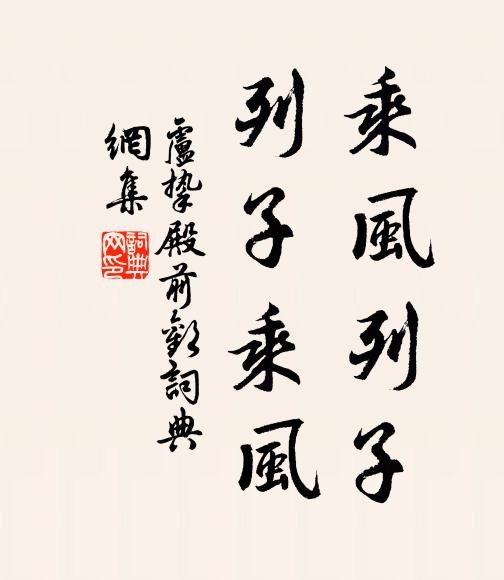 乘風列子
列子乘風
盧摯殿前歡詞典
網集
詞典
網印